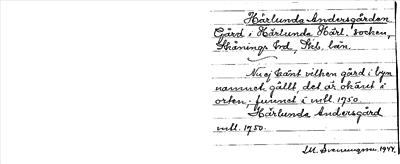 Härlunda Andersgården
Gård i Härlunda Härl. socken,
Skånings hd, Skb. län.
Nu ej känt vilken gård i byn
namnet gällt, det är okänt i
orten; funnet i mtl. 1750.
Härlunda Andersgård
mtl. 1750.
M. Svenungson 1944.